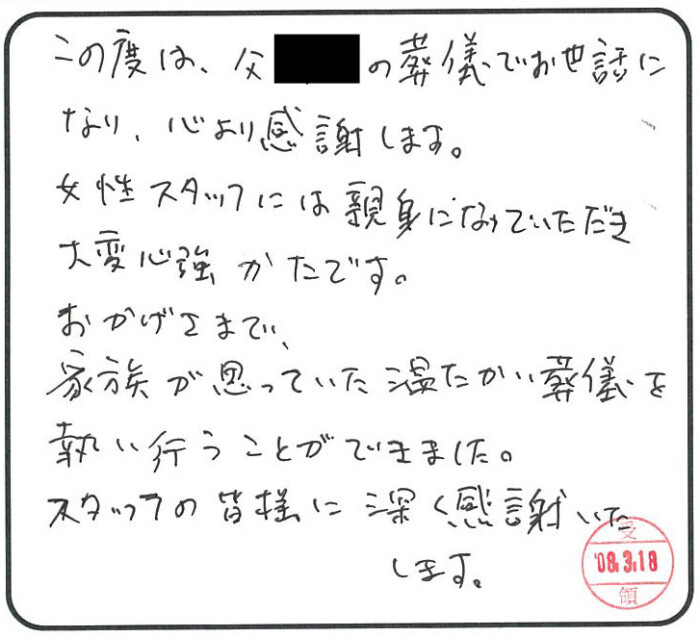 この度は、父 の葬儀でお世話に
なり、心より感謝します。
女性スタッフには親身になっていただき
大変心強かたです。
おかげさまで、
家族が思っていた温たかい葬儀を
執い行うことができました。
スタッフの皆様に深く感謝いた
します。
受
'08.3.18
領